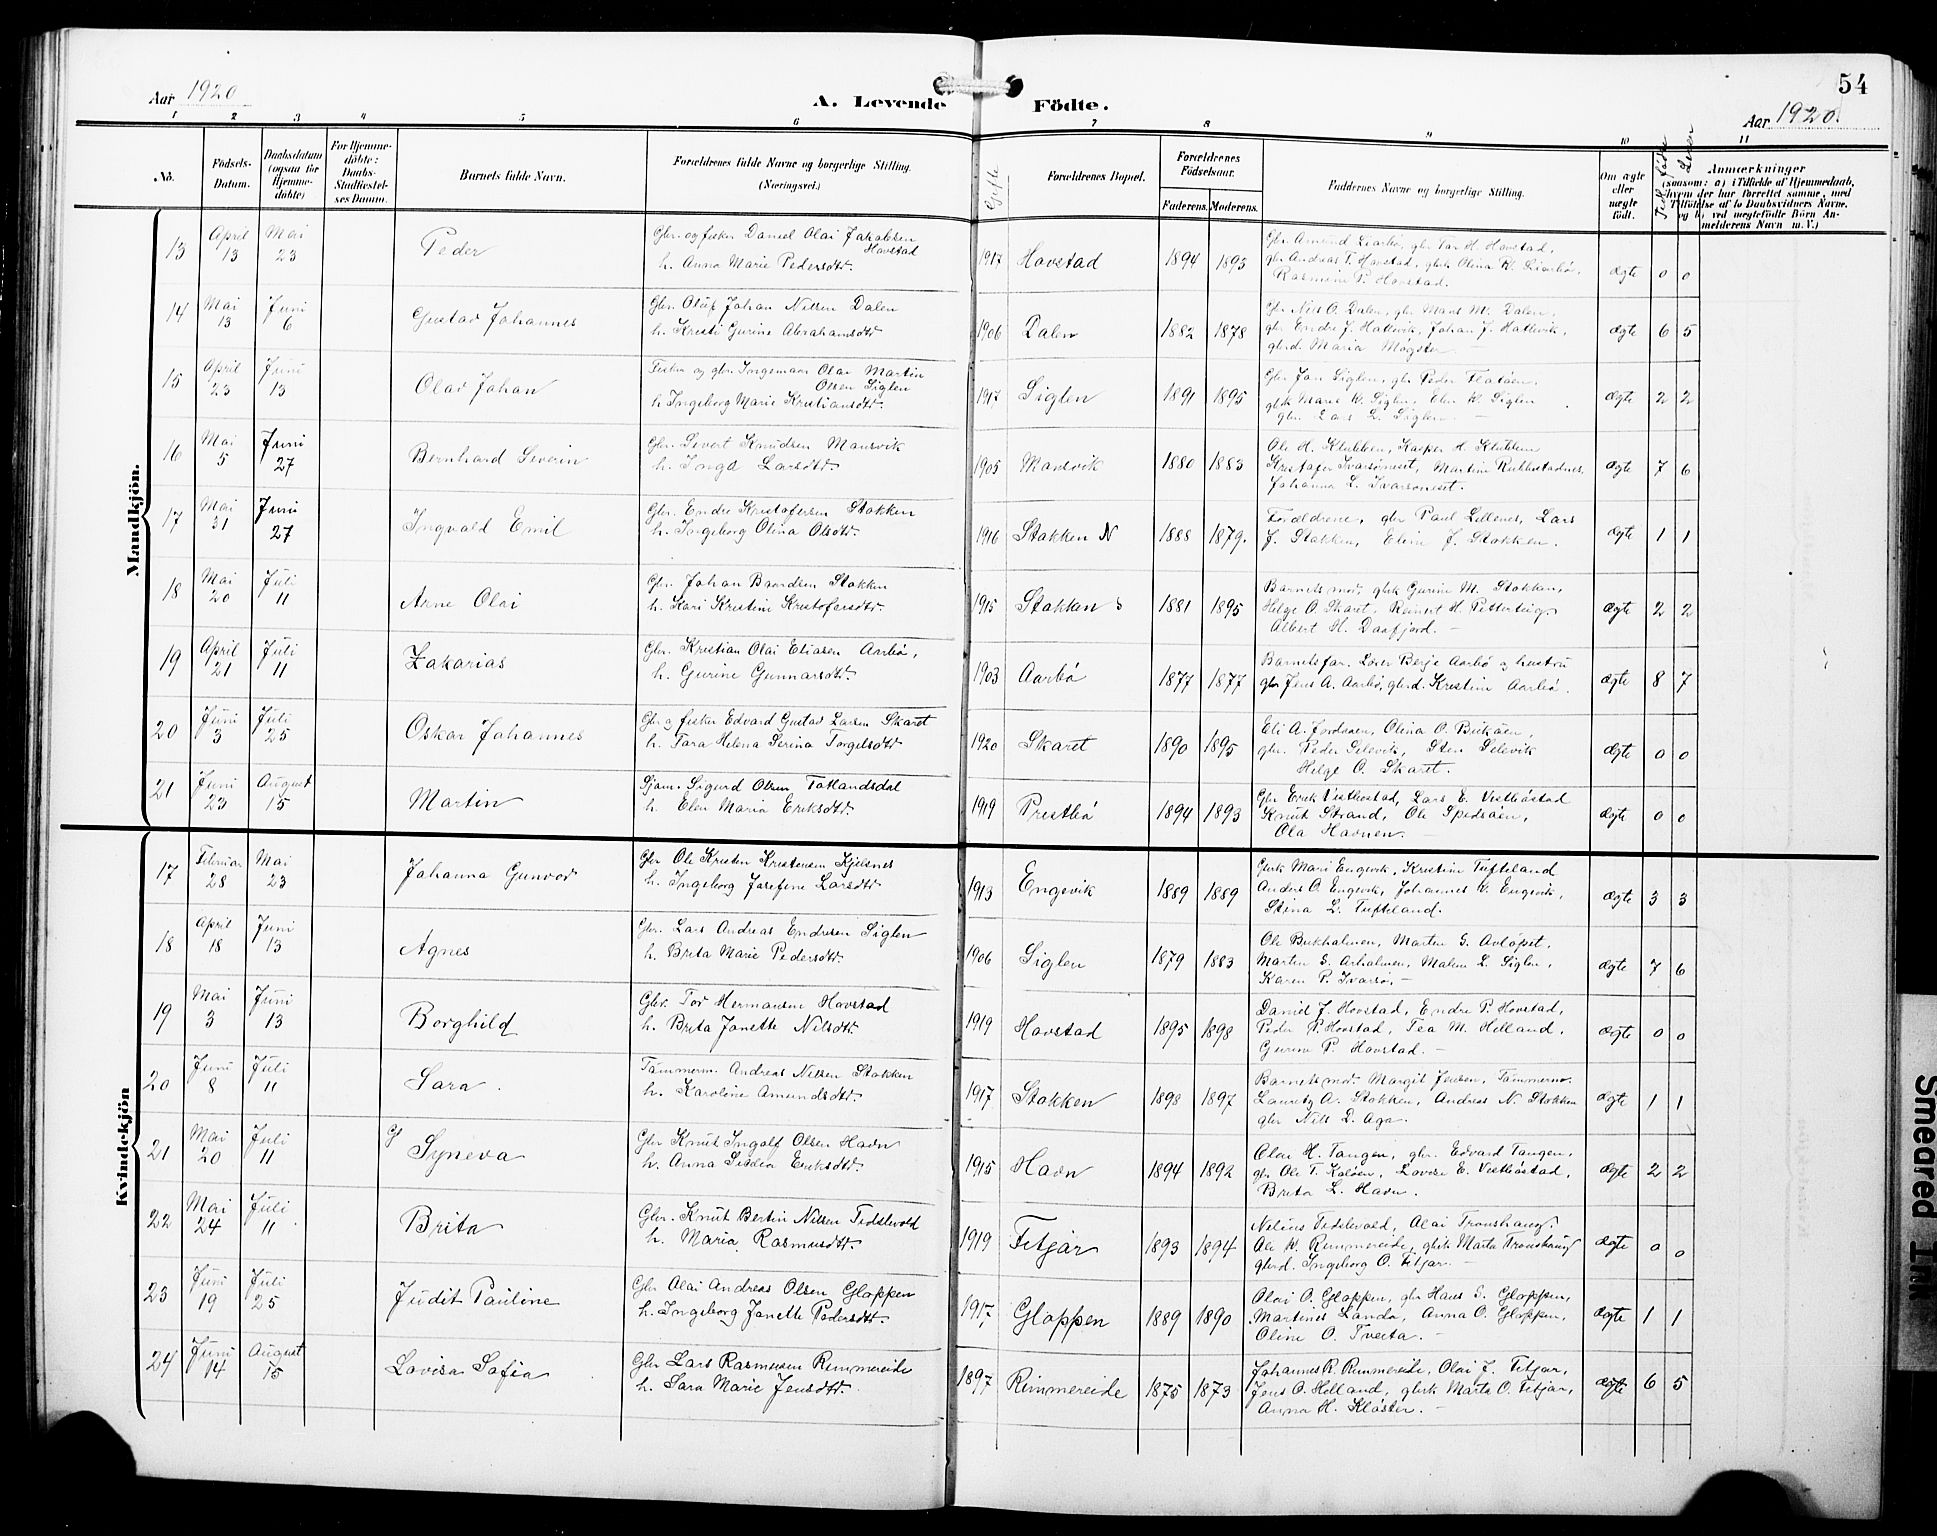 Aar 1920
A. Levende Födte.
54
Aar 1920.
1 2 3 4 5 6 7 8 9 10 11
No.
Födsels-Datum.
Daabsdatum (ogsaa for Hjemmedöbte)
For Hjemmedöbte: Daabs-Stadfæstelses Datum.
Barnets fulde Navn.
Forældrenes fulde Navne og borgerlige Stilling. (Næringsvei.)
Gifte
Forældrenes Bopæl.
Forældrenes Födselsaar.
Faderens. Moderens.
Faddernes Navne og borgerlige Stilling.
Om ægte eller uægte födt.
Tidl. fødte
Lever
Anmærkninger
(saasom: a) i Tilfælde af Hjemmedaab, hvem der har forrettet samme, med Tilföielse af to Daabsvidners Navne, og b) ved uægtefödte Börn Anmelderens Navn m. V.)
Mandkjön.
13 April 13 Mai 23 Peder Gbr. og fisker Daniel Olai Jakobsen Hovstad
h. Anna Marie Pedersdtr. 1917 Hovstad 1894 1893 ægte 0 0
Gbr. Amund Liarbø, gbr Tor H. Hovstad,
gbr Andreas T. Hovstad,
Rasmine P. Hovstad.
14 Mai 13 Juni 6 Gustav Johannes Gbr. Oluf Johan Nilsen Dalen
h. Kristi Gurine Abrahamsdtr 1906 Dalen 1882 1878 ægte 6 5
Gbr Nils O. Dalen, gbr Mons M. Dalen,
gbr Endre J. Hattevik, Johan J. Hattevik,
gbrd. Maria Møgster. –
15 April 23 Juni 13 Olav Johan Fisker og gbr Ingemar Olai Martin
Olsen Siglen
h. Ingeborg Marie Kristiansdtr. 1917 Siglen 1891 1895 ægte 2 2
Gbr Jon Siglen, gbr Peder Flatøen.
gbrk Maret K. Siglen, Elen K. Siglen
gbr Lars L. Siglen. –
16 Mai 5 Juni 27 Bernhard Severin Gbr. Severt Knudsen Mansvik
h. Inga Larsdtr. 1905 Mansvik 1880 1883 ægte 7 6
Ole H. Klubben, Kasper H. Klubben
Kristofer Ivarsøneset, Martine
Johanna L. Ivarsøneset.
17 Mai 31 Juni 27 Ingvald Emil Gbr. Endre Kristofersen Stokken
h. Ingeborg Olina Olsdtr. 1916 Stokken N 1888 1879. ægte 1 1
Forældrene, gbr Paul Lillenes, Lars
J. Stokken, Eline J. Stokken.
18 Mai 20 Juli 11 Arne Olai Gbr. Johan Baardsen Stokken
h. Kari Kristine Kristofersdtr. 1915 Stokken s 1881 1895 ægte 2 2
Barnets mor, gbrk Gurine M. Stokken,
Helge O. Skaret, Reinert H. Petterteig,
Albert H. Daafjord. –
19 April 21 Juli 11 Zakarias Gbr. Kristian Olai Eliasen Aarbø,
h. Gurine Gunnarsdtr. 1903 Aarbø 1877 1877 ægte 8 7
Barnets far. Lærer Berje Aarbø og hustru
gbr Jens A. Aarbø, gbrd. Kristine Aarbø.
20 Juni 3 Juli 25 Oskar Johannes Gbr og fisker Edvard Gustav Larsen Skaret
h. Tara Helena Serina Torgelsdtr 1920 Skaret 1890 1895 ægte 0 0
Eli A. Jordaaen, Olina O. Birkøen,
gbr. Peder Selevik, Sten Selevik
Helge O. Skaret.
21 Juni 23 August 15 Martin Sjøm. Sigurd Olsen Totlandsdal
h. Elen Maria Eriksdtr. 1919 Prestbø 1894 1893 ægte 0 0
Gbr Erik Vestbøstad, Lars E. Vestbøstad
Knut Strand, Ole Spidsøen,
Ola Havnen. –
Kvindekjön
17 Februar 28 Mai 23 Johanna Gunvor Gbr Ole Kristen Kristensen Kjelsnes
h. Ingeborg Josefine Larsdtr 1913 Engevik 1889 1889 ægte 3 3
Gbrk Mari Engevik, Kristine Tufteland
Anders O. Engevik, Johannes K. Engevik,
Stina L. Tufteland.
18 April 18 Juni 13 Agnes Gbr. Lars Andreas Endresen Siglen
h. Brita Marie Pedersdtr. 1906 Siglen 1879 1883 ægte 7 6
Ole Birkholmen, Martin G. Avløpet.
Martin S. Arholmen, Malene L. Siglen,
Karen P. Ivarsø. –
19 Mai 3 Juni 13 Borghild Gbr. Tor Hermansen Hovstad
h. Brita Janette Nilsdtr. 1919 Hovstad 1895 1898 ægte 0 0
Daniel J. Hovstad, Endre P. Hovstad,
Peder P. Hovstad, Tea M. Helland.
Gurine P. Hovstad. –
20 Juni 8 Juli 11 Sara. Tømmerm. Andreas Nilsen Stokken
h. Karoline Amundsdtr. 1917 Stokken 1898 1897 ægte 1 1
Barnets mor. Margit Jensen, Tømmerm.
Lauritz A. Stokken, Andreas N. Stokken
gbr Nils D. Aga.
21 Mai 20 Juli 11 Syneva Gbr Knut Ingolf Olsen Havn
h. Anna Seddia Eriksdtr. 1915 Havn 1894 1892 ægte 2 2
Olai H. Tangen, gbr. Edvard Tangen,
gbr. Ole T. Kaløen, Lovise E. Vestbøstad,
Brita L. Havn.
22 Mai 24 Juli 11 Brita Gbr. Knut Bertin Nilsen Tidslevold
h. Maria Rasmusdtr. 1919 Fitjar 1893 1894 ægte 0 0
Nelius Tidslevold, Olai Tronshaug.
Ole K. Rimmereide, gbrk Marta Tronshaug
gbrd. Ingeborg O. Fitjar. –
23 Juni 19 Juli 25 Judit Pauline Gbr Olai Andreas Olsen Gloppen
h. Ingeborg Janette Pedersdtr. 1917 Gloppen 1889 1890 ægte 1 1
Olai O. Gloppen, gbr Hans S. Gloppen,
Martines Landa, Anna O. Gloppen,
Oline O. Tveita. –
24 Juni 14 August 15 Lovisa Sofia Gbr Lars Rasmusen Rimmereide
h. Sara Marie Jensdtr. 1897 Rimmereide 1875 1873 ægte 6 5
Johannes R. Rimmereide, Olai J. Fitjar,
Jens O. Helland, gbrk Marta O. Fitjar,
Anna H. Kloster. –
Smeared INK